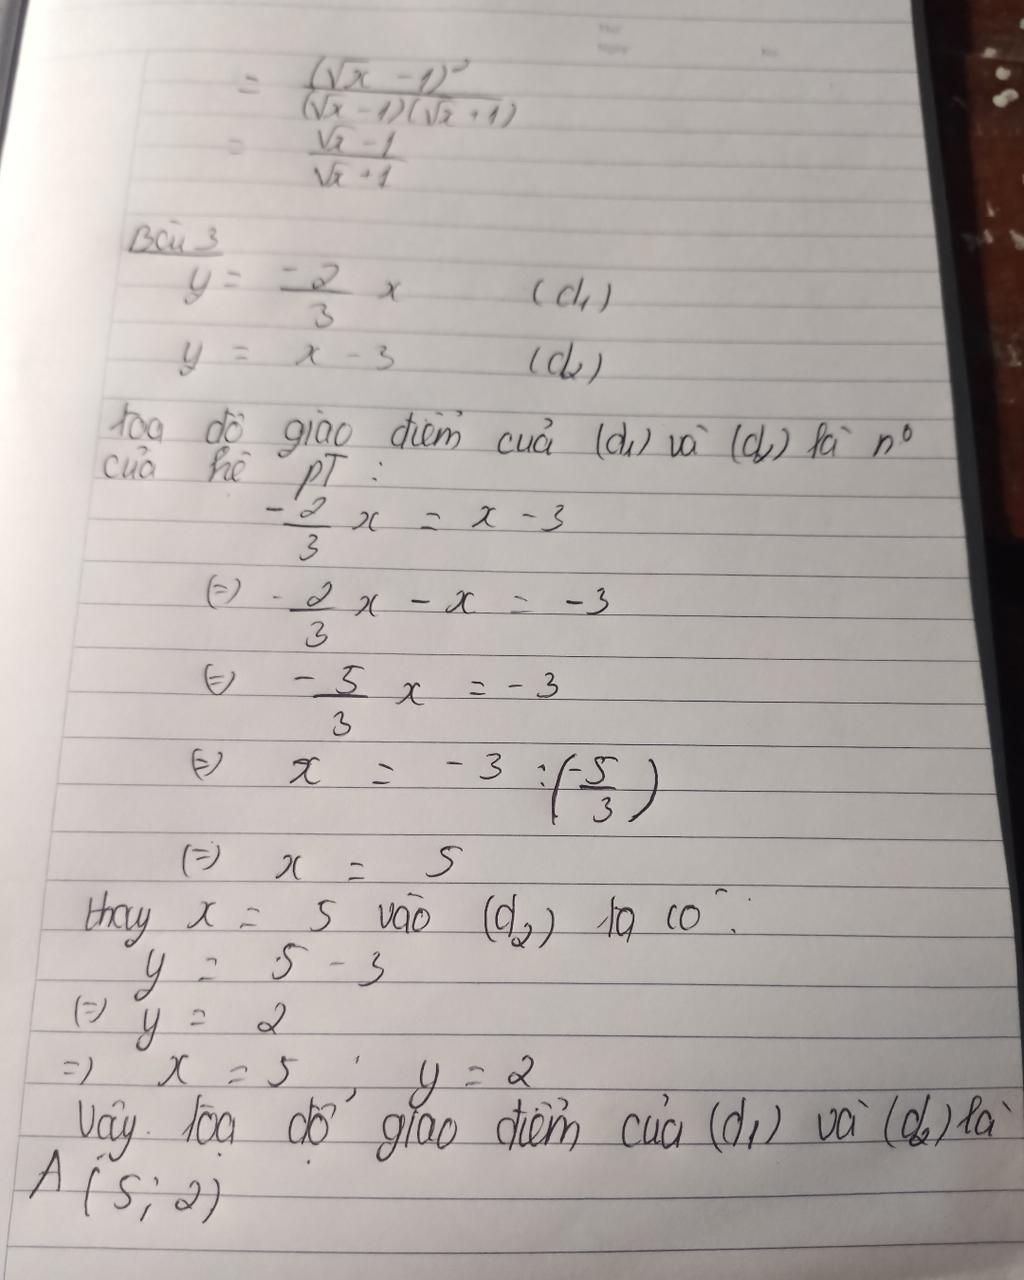 = (√x - 1)² / (√x - 1)(√x + 1)
= √x - 1 / √x + 1
Bài 3
y = -2/3 x (d₁)
y = x - 3 (d₂)
tọa độ giao điểm của (d₁) và (d₂) là n⁰
của hệ PT :
-2/3 x = x - 3
(=) -2/3 x - x = -3
(=) -5/3 x = -3
(=) x = -3 : (-5/3)
(=) x = 5
thay x = 5 vào (d₂) ta có :
y = 5 - 3
(=) y = 2
=) x = 5 ; y = 2
Vậy tọa độ giao điểm của (d₁) và (d₂) là
A (5; 2)